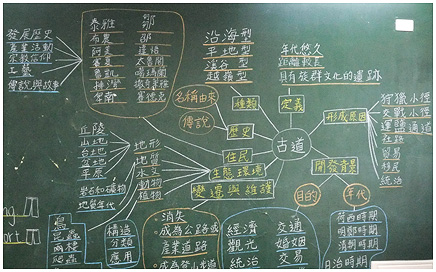 發展歷史
產業活動
宗教信仰
工藝
傳說與故事
泰雅
布農
阿美
賽夏
魯凱
排灣
卑南
邵
鄒
達悟
太魯閣
噶瑪蘭
撒奇萊雅
賽德克
沿海型
平地型
溪谷型
越嶺型
種類
年代悠久
距離較長
具有族群文化的遺跡
定義
名稱由來
傳說
歷史
古道
形成原因
狩獵小徑
交戰小徑
運鹽通道
社路
貿易
移民
統治
住民
生態環境
變遷與維護
開發背景
目的
年代
丘陵
山地
台地
盆地
平原
岩石和礦物
地質年代
地形
地質
水文
動物
植物
鳥
昆蟲
兩棲
爬蟲
構造
分類
應用
消失
成為公路或
產業道路
成為登山步道
經濟
觀光
統治
交通
婚姻
交易
荷西時期
明鄭時期
清朝時期
日治時期